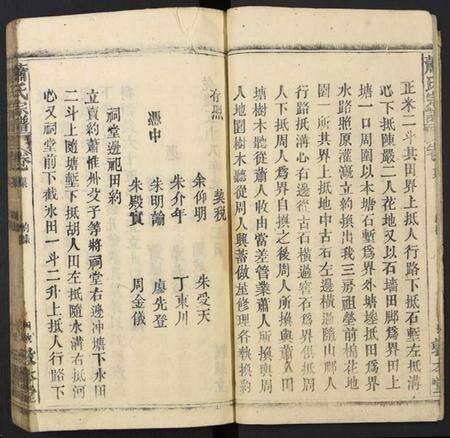 正米二斗其田界上抵人行路下抵石塹左抵溝
心下抵陳嚴二人花地又以石墙田脚爲界田上
塘一口周圍以本塘石塹爲界外塘塍抵田爲界
水路照原灌溉立約換出我三房祖塋前棉花地
園一所其界上抵地中古石左邊橫過隨山脚人
行路抵溝心右邊從古石橫過窖石爲界俱抵周
人行路抵周人爲界自換之後周人所換與蕭人田
塘樹木聽從蕭人收由當差管業蕭人所換與周
人地園樹木聽從周人興蓄做塋修理各執換約
存照
契稅
余仰明 朱受天
朱介年 丁東川
憑中 朱明諭 廖先登
朱殿賓 周金儀
祠堂邊祀田約
立賣約蕭惟州父子等將祠堂右邊冲塘下水田
二斗上随塘塹下抵胡人田左抵随水溝右抵河
心又祠堂前下截水田一斗二升上抵人行路下
蕭氏宗譜